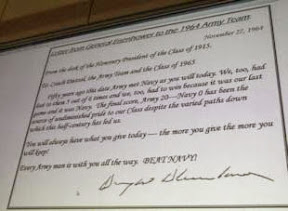 Letter from General Eisenhower to the 1964 Army Team
November 27, 1964
From the desk of the Honorary President of the Class of 1915.
To: Coach Dietzel, the Army Team and the Class of 1965
Fifty years ago this date Army met Navy as you will today. We, too, had
lost to them 5 out of times and we, too, had to win because it was our last
game and it was Navy. The final score, Army 20—Navy 0 has been the
source of undiminished pride to our Class despite the varied paths down
which this half-century has led us.
You will always have what you give today — the more you give the more you
will keep!
Every Army man is with you all the way. BEAT NAVY!
Dwight D Eisenhower